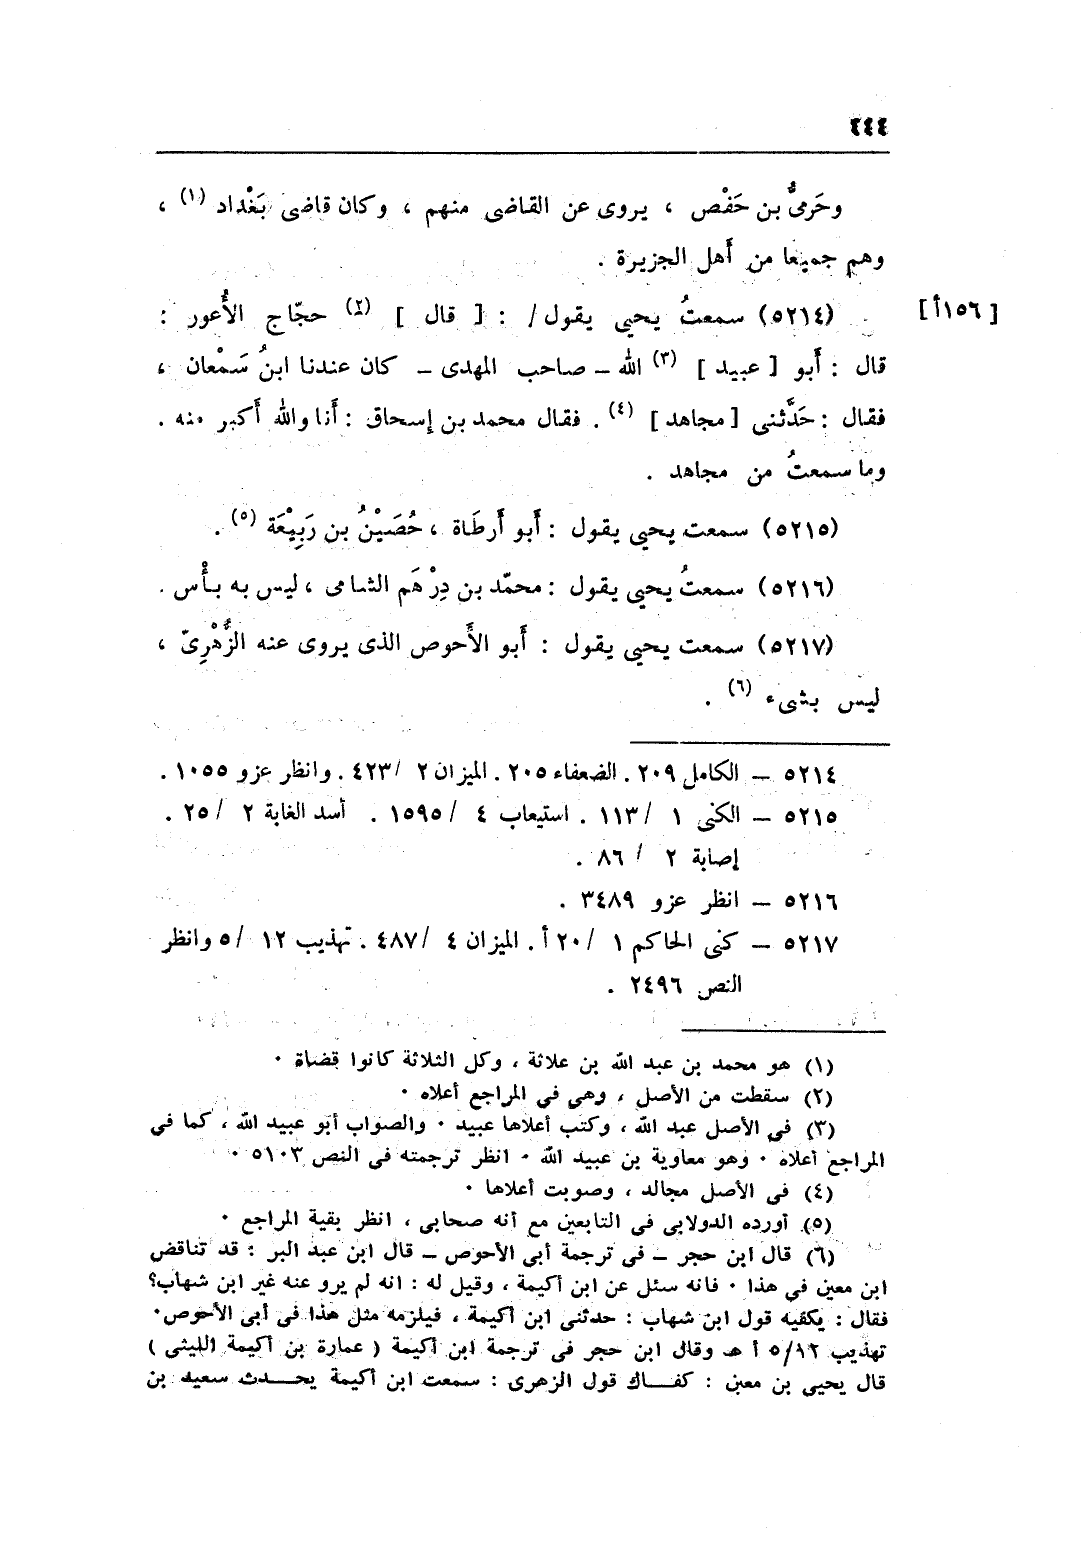 ٤٤٤
وحَرمىُّ بن حَفْص ، يروى عن القاضى منهم ، وكان قاضى بَغْداد (١) ،
وهم جميعا من أَهل الجزيرة .
[ ١٥٦أ]
(٥٢١٤) سمعتُ يحيى يقول/ : [ قال ] (٢) حجّاج الأُعور :
قال : أَبو [ عبيد ] (٣) الله – صاحب المهدى – كان عندنا ابنُ سَمْعان ،
فقال : حَدَّثنى [ مجاهد ] (٤) . فقال محمد بن إسحاق : أَنا والله أَكبر منه .
وما سمعتُ من مجاهد .
(٥٢١٥) سمعت يحيى يقول : أَبو أَرطَاة ، حُصَيْنُ بن رَبِيْعَة (٥) .
(٥٢١٦) سمعتُ يحيى يقول : محمّد بن دِرْهَم الشامى ، ليس به بأْس .
(٥٢١٧) سمعت يحيى يقول : أَبو الأَحوص الذى يروى عنه الزُّهْرِىّ ،
ليس بشىء (٦) .
٥٢١٤ – الكامل ٢٠٩ . الضعفاء ٢٠٥ . الميزان ٢ /٤٢٣ . وانظر عزو ١٠٥٥ .
٥٢١٥ – الكنى ١ /١١٣ . استيعاب ٤ /١٥٩٥ . أسد الغابة ٢ /٢٥ .
إصابة ٢ /٨٦ .
٥٢١٦ – انظر عزو ٣٤٨٩ .
٥٢١٧ – كنى الحاكم ١ /٢٠ أ . الميزان ٤ /٤٨٧ . تهذيب ١٢ /٥ وانظر
النص ٢٤٩٦ .
(١) هو محمد بن عبد الله بن علاثة ، وكل الثلاثة كانوا قضاة ٠
(٢) سقطت من الأصل ، وهي في المراجع أعلاه ٠
(٣) في الأصل عبد الله ، وكتب أعلاها عبيد ٠ والصواب أبو عبيد الله ، كما في
المراجع أعلاه ٠ وهو معاوية بن عبيد الله ٠ انظر ترجمته في النص ٥١٠٣ ٠
(٤) في الأصل مجالد ، وصوبت أعلاها ٠
(٥) أورده الدولابي في التابعين مع أنه صحابي ، انظر بقية المراجع ٠
(٦) قال ابن حجر – في ترجمة أبي الأحوص – قال ابن عبد البر : قد تناقض
ابن معين في هذا ٠ فانه سئل عن ابن أكيمة ، وقيل له : انه لم يرو عنه غير ابن شهاب؟
فقال : يكفيه قول ابن شهاب : حدثنى ابن أكيمة ، فيلزمه مثل هذا في أبي الأحوص٠
تهذيب ٥/١٢ أ هـ وقال ابن حجر في ترجمة ابن أكيمة ( عمارة بن أكيمة الليثى )
قال يحيى بن معين : كفـــاك قول الزهرى : سمعت ابن أكيمة يحـــدث سعيد بن